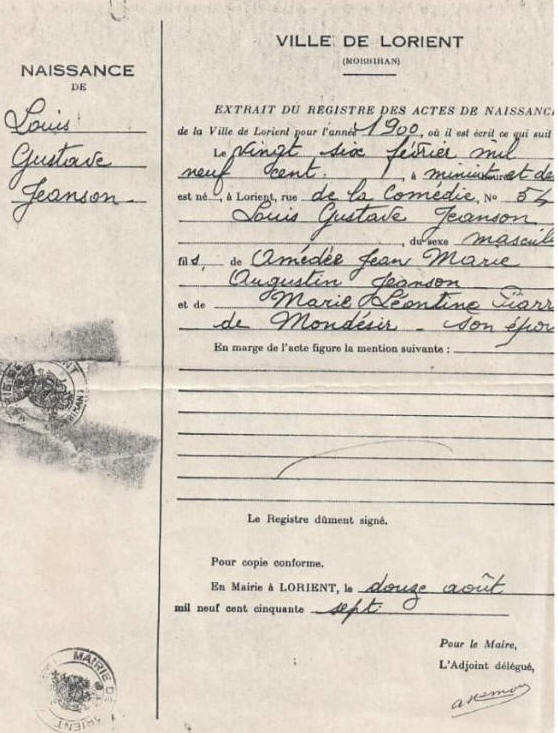 NAISSANCE
DE
Louis
Gustave
Jeanson
VILLE DE LORIENT
(MORBIHAN)
EXTRAIT DU REGISTRE DES ACTES DE NAISSANC
de la Ville de Lorient pour l'année 1900, où il est écrit ce qui suit
Le vingt six février mil
neuf cent. , à minuit et de
est né , à Lorient, rue de la Comédie, No 54
Louis Gustave Jeanson
, du sexe mascul
fils, de Amédée Jean Marie
Augustin Jeanson
et de Marie Léontine
de Mondésir - son épou
En marge de l'acte figure la mention suivante :
Le Registre dûment signé.
Pour copie conforme.
En Mairie à LORIENT, le douze août
mil neuf cent cinquante sept
Pour le Maire,
L'Adjoint délégué,
MAIRIE DE